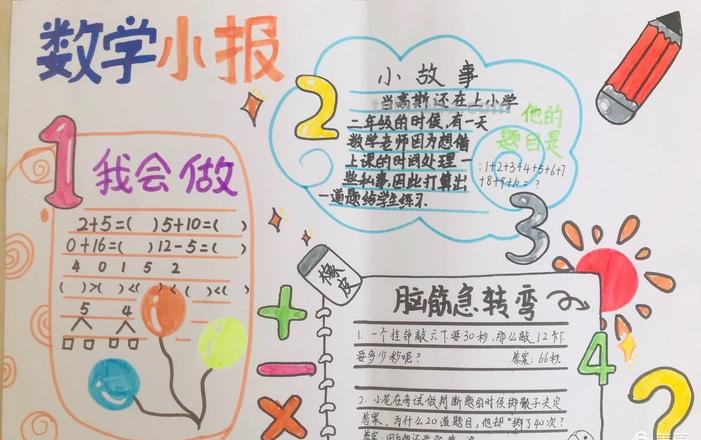 数学小报
1
我会做
2+5=( ) 5+10=( )
0+16=( ) 12-5=( )
4 0 1 5 2
( )>( )<( )<( )<( )
5 4
2
小故事
当高斯还在上小学
二年级的时候,有一天
数学老师因为想借
上课的时间处理一
些私事,因此打算出
一道题给学生练习.
他的
题目是
:1+2+3+4+5+6+7
+8+9+10=?
3
橡皮
脑筋急转弯
1. 一个挂钟敲六下要30秒,那么敲12下
要多少秒呢? 答案:66秒.
2. 小龙在考试做判断题的时候掷骰子决定
答案,为什么20道题目,他却"掷了40次?
4
?
+
-
×